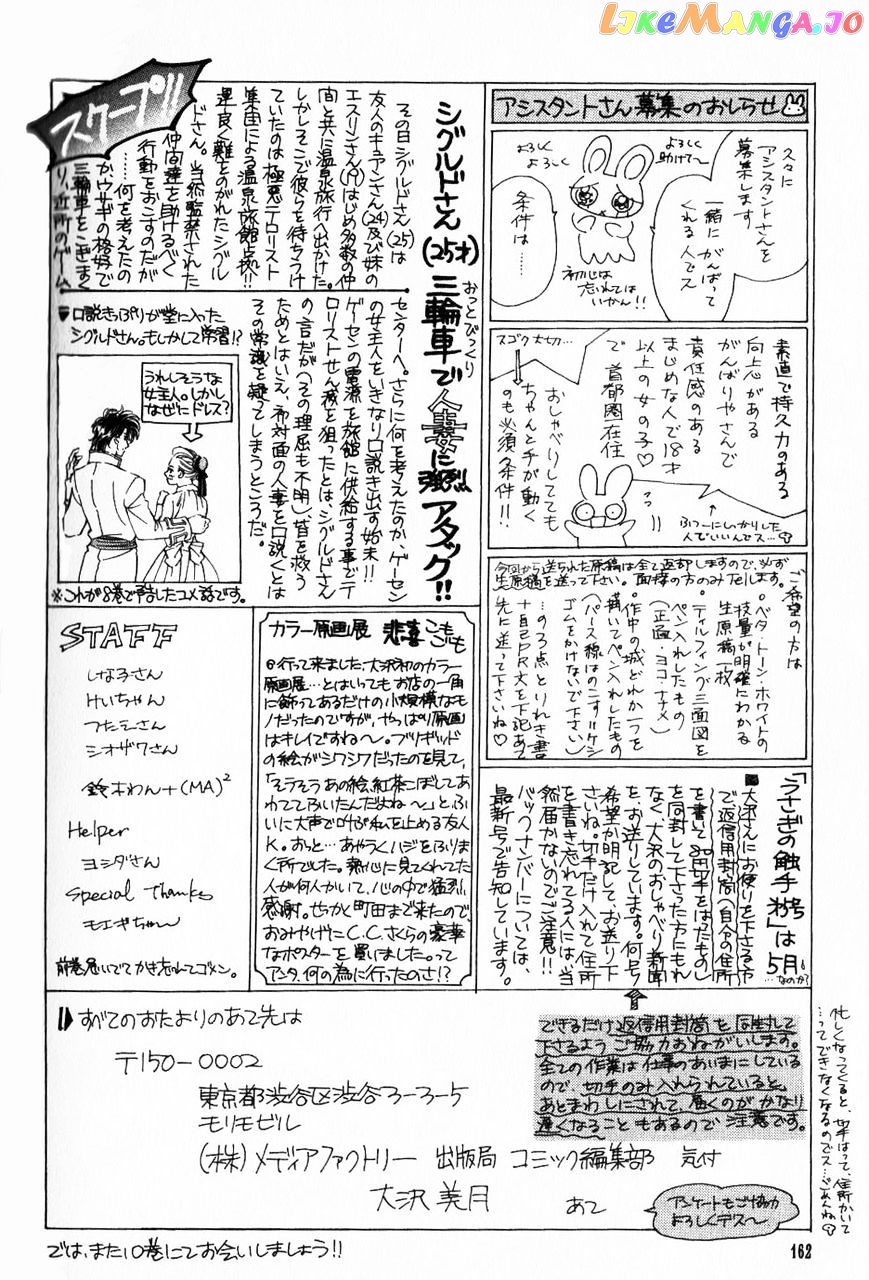 LIKEMANGA.IO
アシスタントさん募集のおしらせ
久々に
アシスタントさんを
募集します
一緒にがんばって
くれる人でス
条件は……
よろしく
助けて〜
よろしく
よろしく
初心は
忘れては
いかん!!
素直で持久力のある
向上心がある
がんばりやさんで
責任感のある
まじめな人で18才
以上の女の子♡
で首都圏在住
スゴク大切…
おしゃべりしてても
ちゃんと手が動く
のも必須条件!!
ふつーにしっかりした
人でいいんでス…
今回から送られた原稿は全て返却しますので、必ず
生原稿を送って下さい。面接の方のみTelします。
ご希望の方は
・ベタ・トーン・ホワイトの
技量が明確にわかる
生原稿一枚
・ティルフィング三面図を
ペン入れしたもの
(正面・ヨコ・ナナメ)
・作中の城どれか一つを
描いてペン入れしたもの
(パース線はのこす!!ケシ
ゴムをかけないで下さい)
…の3点とりれき書
+自己PR文を下記あて
先に送って下さいね♡
スクープ!!
シグルドさん(25才)三輪車で人妻に強烈アタック!!
おっとびっくり
その日シグルドさん(25)は
友人のキュアンさん(24)及び妹の
エスリンさん(19)はじめ多数の仲
間と共に温泉旅行へ出かけた。
しかしそこで彼らを待ちうけ
ていたのは極悪テロリスト
集団による温泉旅館占拠!!
運良く難をのがれたシグル
ドさん。当然監禁された
仲間達を助けるべく
行動をおこすのだが
……何を考えたの
かウサギの格好で
三輪車をこぎまく
り、近所のゲーム
センターへ。さらに何を考えたのか、ゲーセン
の女主人をいきなり口説き出す始末!!
ゲーセンの電源を旅館に供給する事でテ
ロリストせん滅を狙ったとはシグルドさん
の言だが(その理屈も不明)、皆を救う
ためとはいえ、初対面の人妻を口説くとは
その常識を疑ってしまうところだ。
口説きっぷりが堂に入った
シグルドさん。もしかして学習!?
うれしそうな
女主人。しかし
なぜにドレス?
※これが8巻で予告したコメ話です。
STAFF
しな子さん
けいちゃん
シオザワさん
鈴木わん+(MA)²
Helper
ヨシダさん
Special Thanks
モエギちゃ〜ん
カラー原画展 悲喜こもごも
◎行って来ました、大沢初のカラー
原画展…とはいってもお店の一角
に飾ってあるだけの小規模なモ
ノだったのですが、やっぱり原画
はキレイですね〜。ブリギッド
の絵がシワシワだったのを見て、
「そうそうあの絵、紅茶こぼしてあ
わててふいたんだよね〜」と、ふ
いに大声で叫ぶ私を止める友人
K。おっと…あやうくハジをふりま
く所でした。熱心に見てくれてた
人が何人かいて、心の中で猛烈
感謝。せっかく町田まで来たので、
おみやげにC.C.さくらの豪華
なポスターを買いました。って
アンタ、何の為に行ったのさ!?
「うさぎの触手 号」は5月
…なのか?
■大沢さんにお便りを下さる方
で返信用封筒(自分の住所
を書いて80円切手をはったもの)
を同封して下さった方にもれ
なく大沢のおしゃべり新聞
を、お送りしています。何号
希望か明記して、お送り下
さいね。切手だけ入れて住所
を書き忘れてる人には、当
然届かないのでご注意!!
バックナンバーについては、
最新号で告知しています。
できるだけ返信用封筒を同封して
下さるようご協力おねがいします。
全ての作業は仕事のあいまにしている
ので、切手のみ入れられていると、
あとまわしにされて、届くのがかなり
遅くなることもあるので注意です。
忙しくなってくると、切手はって、住所かいて
…ってできなくなるのでス…ごめんね
すべてのおたよりのあて先は
〒150-0002
東京都渋谷区渋谷3-3-5
モリモビル
(株)メディアファクトリー 出版局 コミック編集部 気付
大沢美月 あて
アンケートもご協力
よろしくデス〜
では、また10巻にてお会いしましょう!!
162